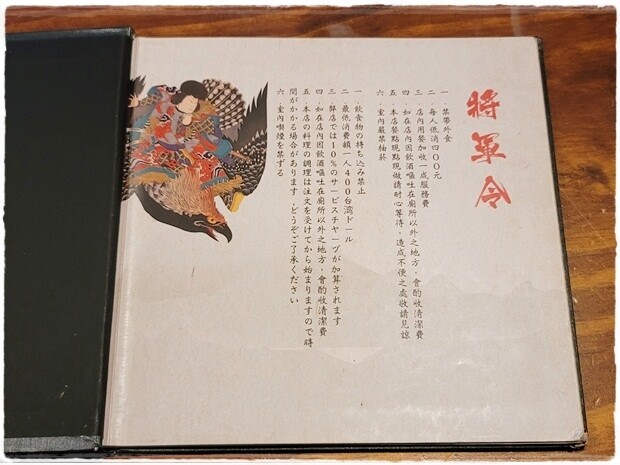 將軍令
一．禁帶外食
二．每人低消四〇〇元
三．店內用餐加收一成服務費
四．如在店內因飲酒嘔吐在廁所以外之地方，會酌收清潔費
五．本店餐點現點現做請耐心等待，造成不便之處敬請見諒
六．室內嚴禁抽菸
一．飲食物の持ち込み禁止
二．最低消費額一人400台湾ドール
三．弊店では10%のサービスチャーヅが加算されます
四．如在店內因飲酒嘔吐在廁所以外之地方，會酌收清潔費
五．本店の料理の調理は注文を受けてから始まりますので時
間がかかる場合があります，どうぞご了承ください
六．室內喫煙を禁ずる